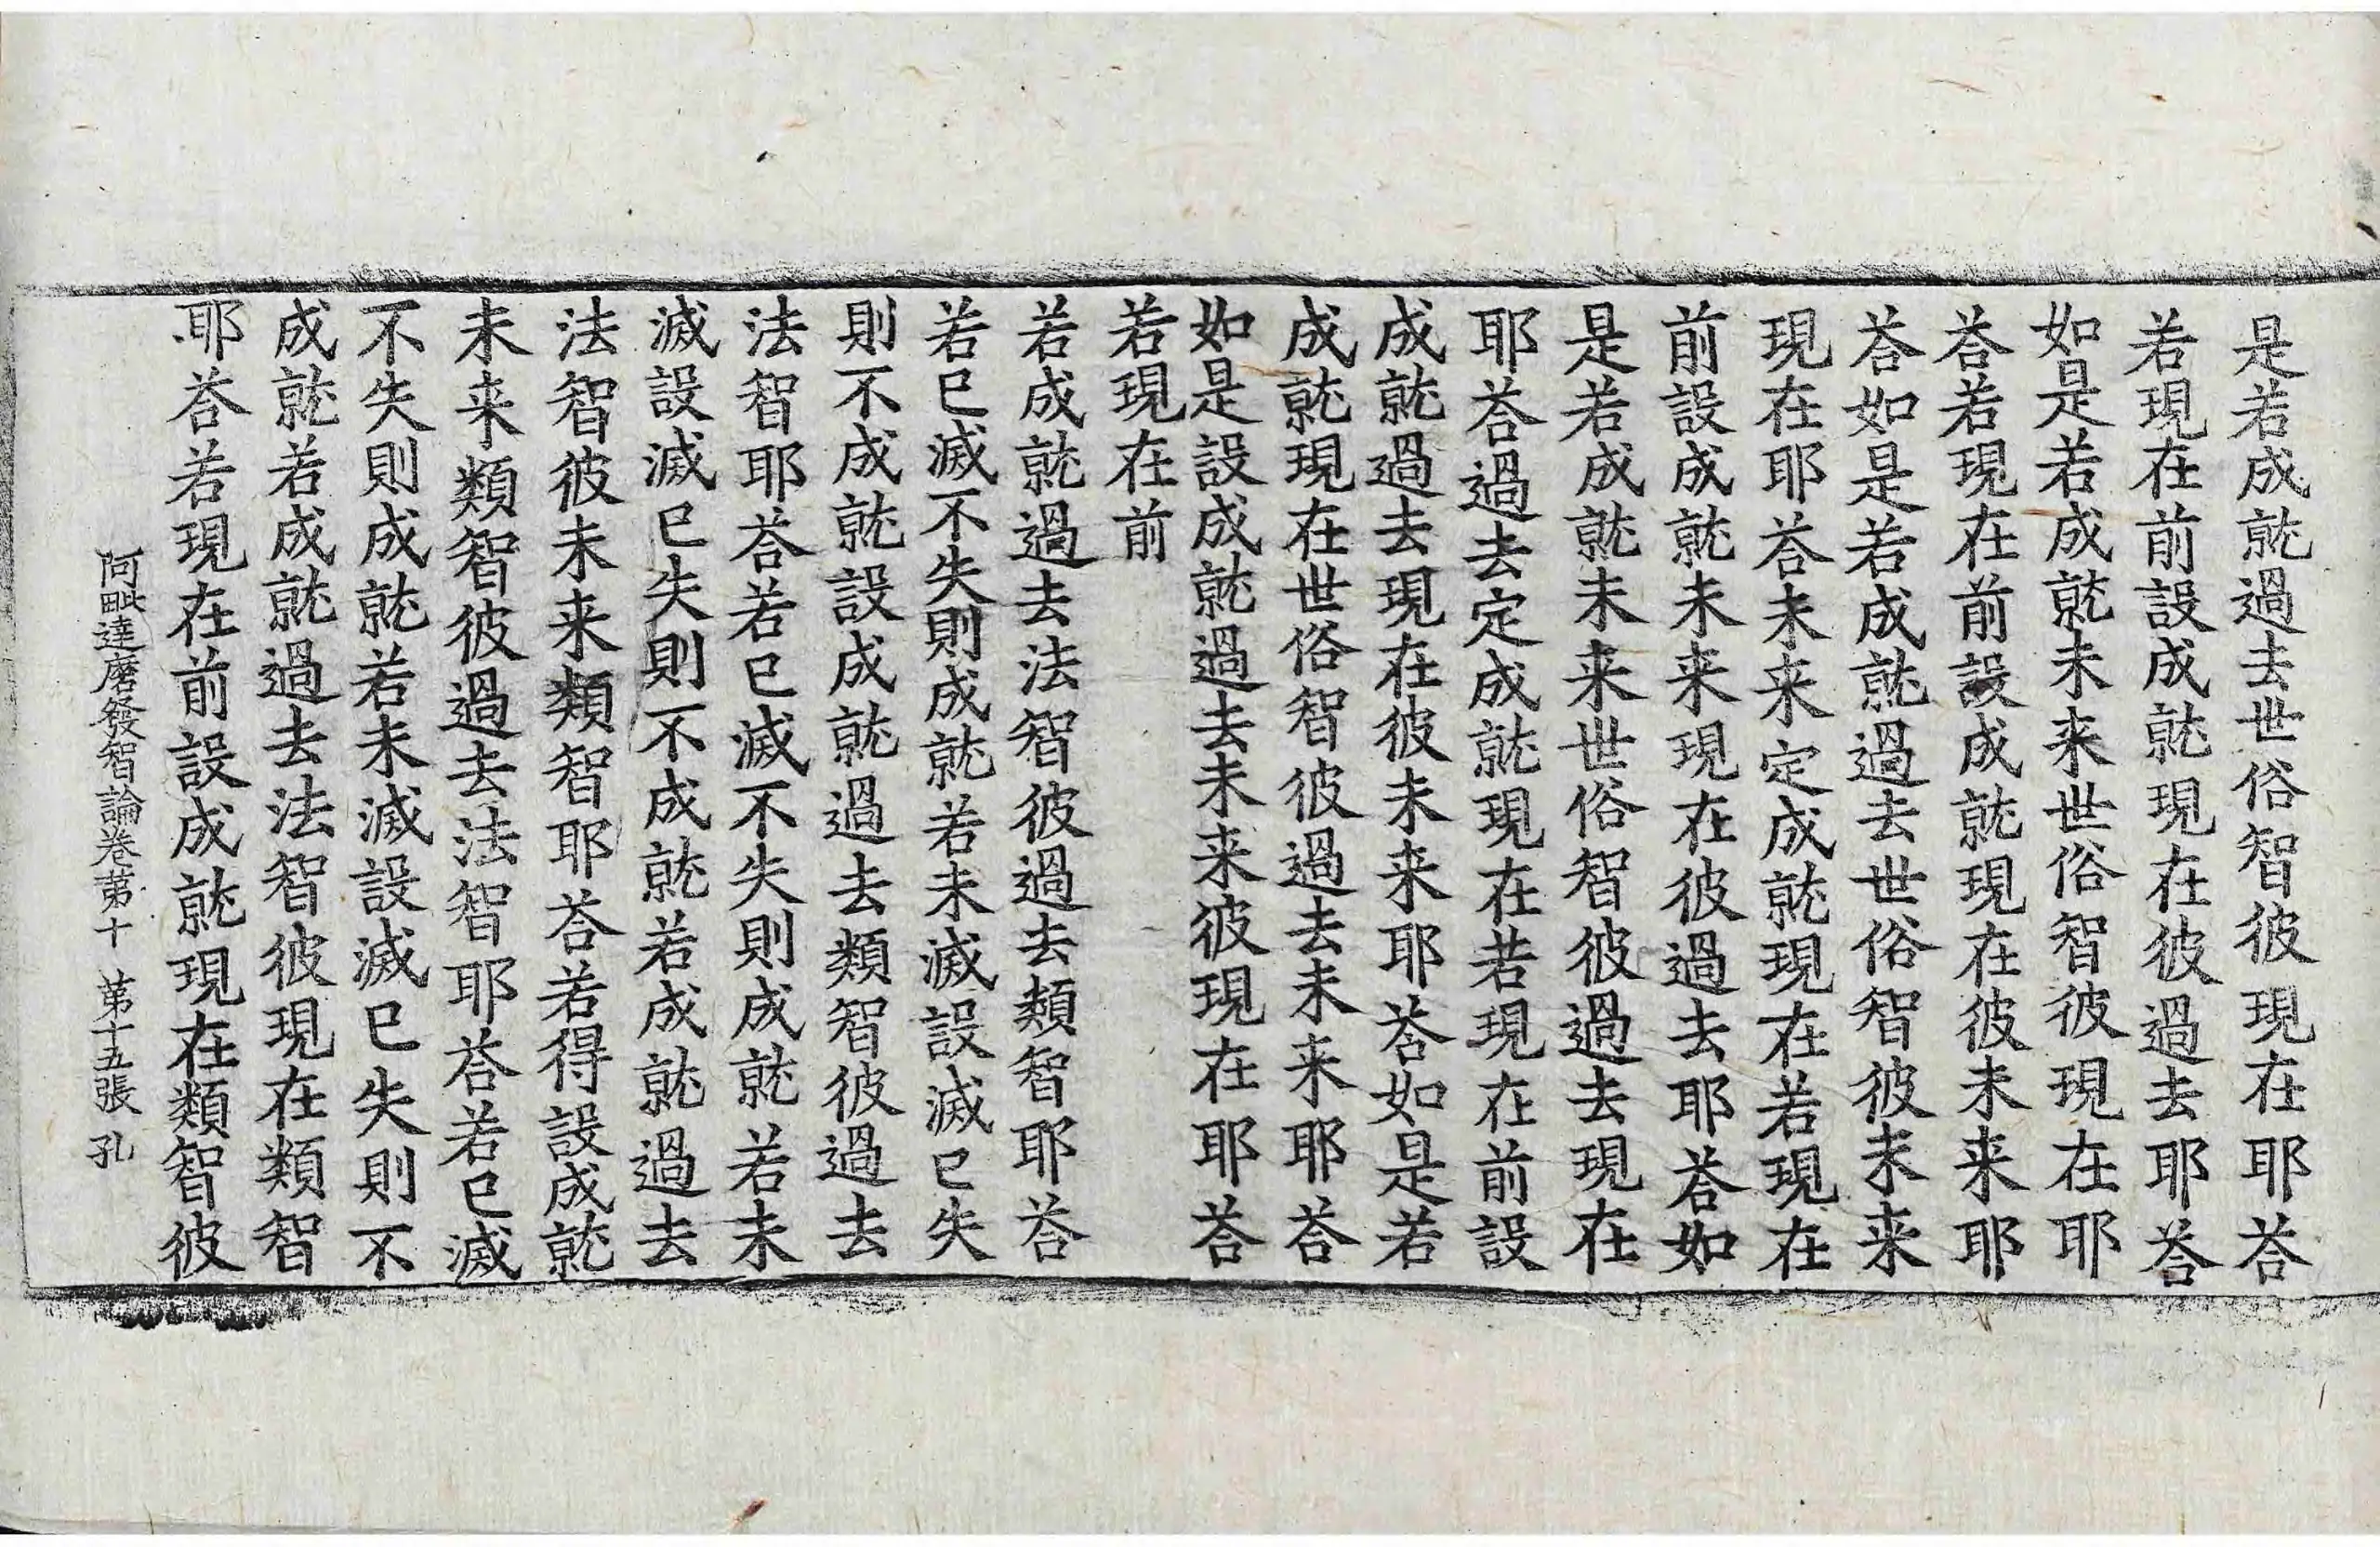 是若成就過去世俗智彼現在耶荅
若現在前設成就現在彼過去耶荅
如是若成就未来世俗智彼現在耶
荅若現在前設成就現在彼未来耶
荅如是若成就過去世俗智彼未来
現在耶荅未来定成就現在若現在
前設成就未来現在彼過去耶荅如
是若成就未来世俗智彼過去現在
耶荅過去定成就現在若現在前設
成就過去現在彼未来耶荅如是若
成就現在世俗智彼過去未来耶荅
如是設成就過去未来彼現在耶荅
若現在前
若成就過去法智彼過去類智耶荅
若已滅不失則成就若未滅設滅已失
則不成就設成就過去類智彼過去
法智耶荅若已滅不失則成就若未
滅設滅已失則不成就若成就過去
法智彼未来類智耶荅若得設成就
未来類智彼過去法智耶荅若已滅
不失則成就若未滅設滅已失則不
成就若成就過去法智彼現在類智
耶荅若現在前設成就現在類智彼
阿毗達磨發智論卷苐十 苐十五張 孔